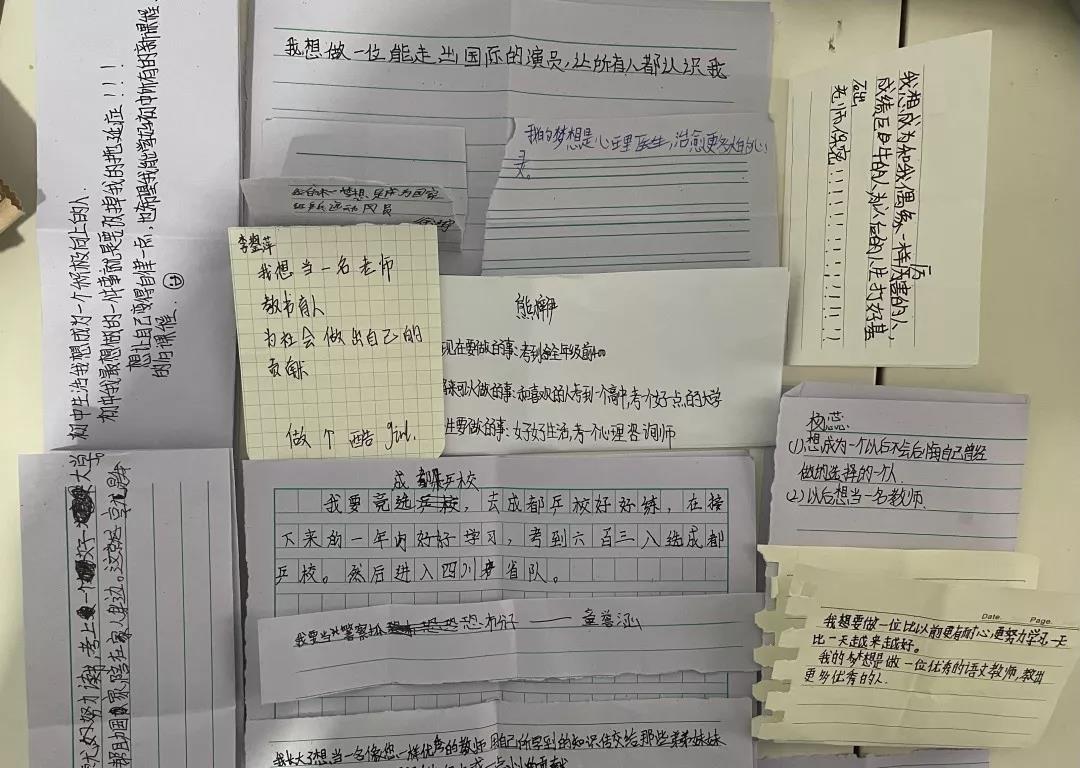 我想做一位能走出国际的演员,让所有人都认识我
我的梦想是心理医生,治愈更多人的心
灵。
我想成为和我偶像一样厉害的人,
成绩巨巨牛的人为以后的人生打好基
础
老师保密!!!!!!!!!!
初中生活我想成为一个积极向上的人
初中我最想做的一件事就是要改掉我的拖延症!!!
想让自己变得自律一点,也希望我能学好初中所有的新课程
的所有课程.
梦想
国家
运动员
我想当一名老师
教书育人
为社会做出自己的
贡献
做个酷 girl.
现在要做的事:考到全年级前
来可以做的事:和喜欢的人考到一个高中,考个好一点的大学
生要做的事:好好生活,考个心理咨询师
成都乒校
我要竞选乒校,去成都乒校好好练,在接
下来的一年内好好学习,考到六百三入选成都
乒校。然后进入四川省队。
我要当警察抓恐怖分子——
(1)想成为一个以后不会后悔自己曾经
做的选择的一个人
(2)以后想当一名教师.
Date. Page.
我想要做一位比以前更有耐心,更努力学习,一天
比一天越来越好。
我的梦想是做一位优秀的语文教师,教出
更多优秀的人.
努力读书 考上一个好 大学
陪在家人身边。
我长大了想当一名像您一样优秀的教师 用自己所学到的知识传交给那些弟弟妹妹